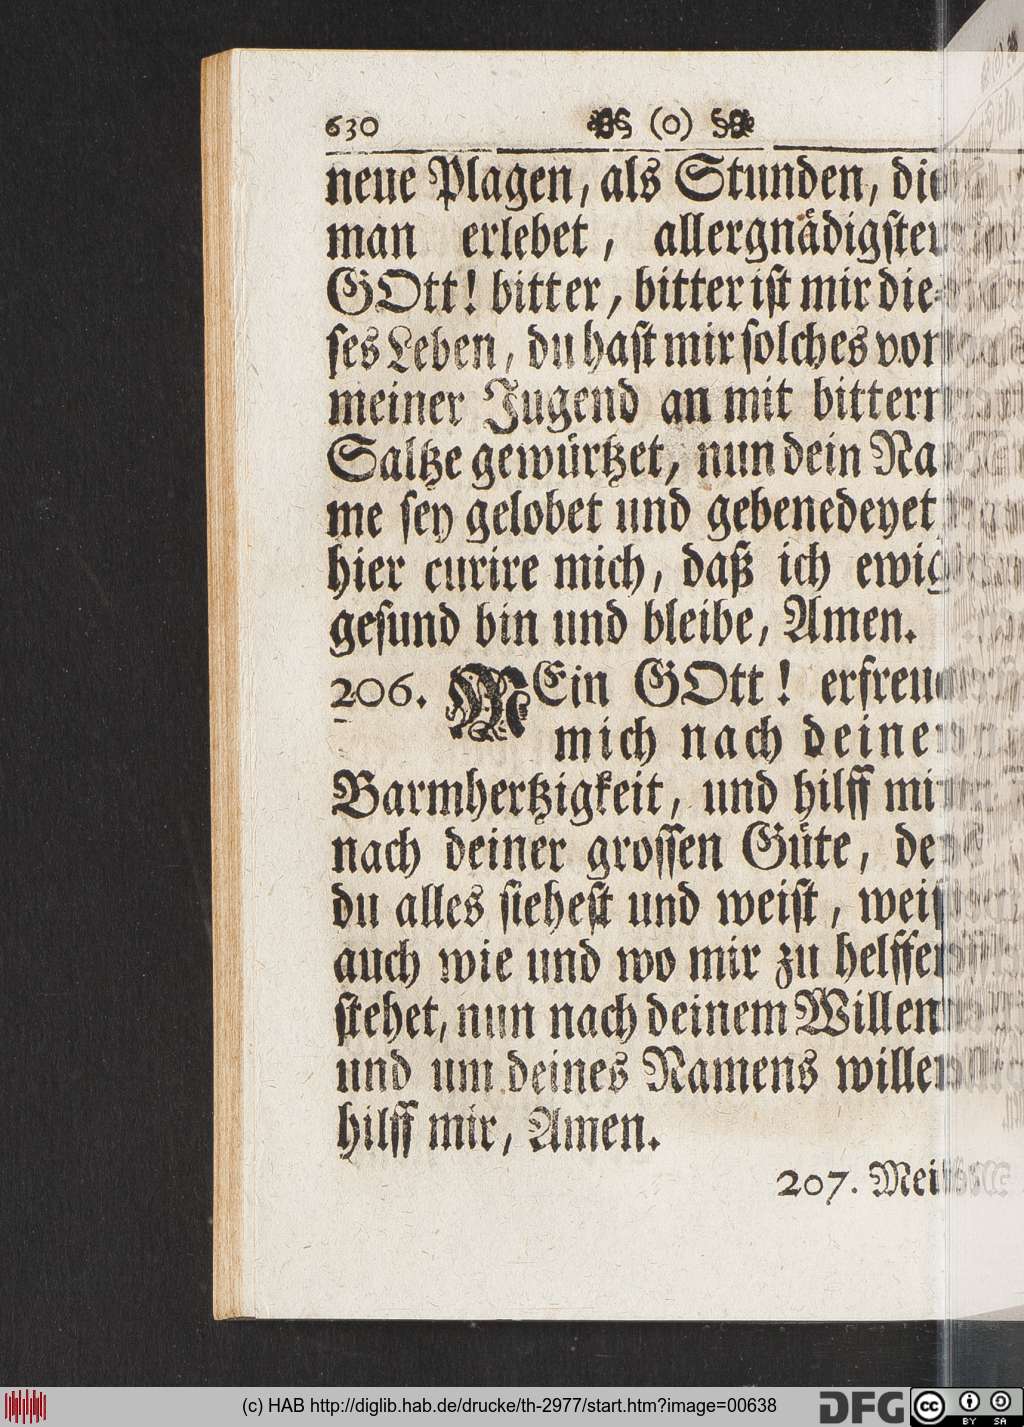 630 (0)
neue Plagen, als Stunden, die
man erlebet, allergnädigster
GOtt! bitter, bitter ist mir die-
ses Leben, du hast mir solches von
meiner Jugend an mit bittern
Saltze gewürtzet, nun dein Na
me sey gelobet und gebenedeyet
hier curire mich, daß ich ewig
gesund bin und bleibe, Amen.
206. MEin GOtt! erfreue
mich nach deiner
Barmhertzigkeit, und hilff mir
nach deiner grossen Güte, der
du alles siehest und weist, weist
auch wie und wo mir zu helffen
stehet, nun nach deinem Willen
und um deines Namens willen
hilff mir, Amen.
207. Mein
(c) HAB http://diglib.hab.de/drucke/th-2977/start.htm?image=00638
DFG
cc BY SA